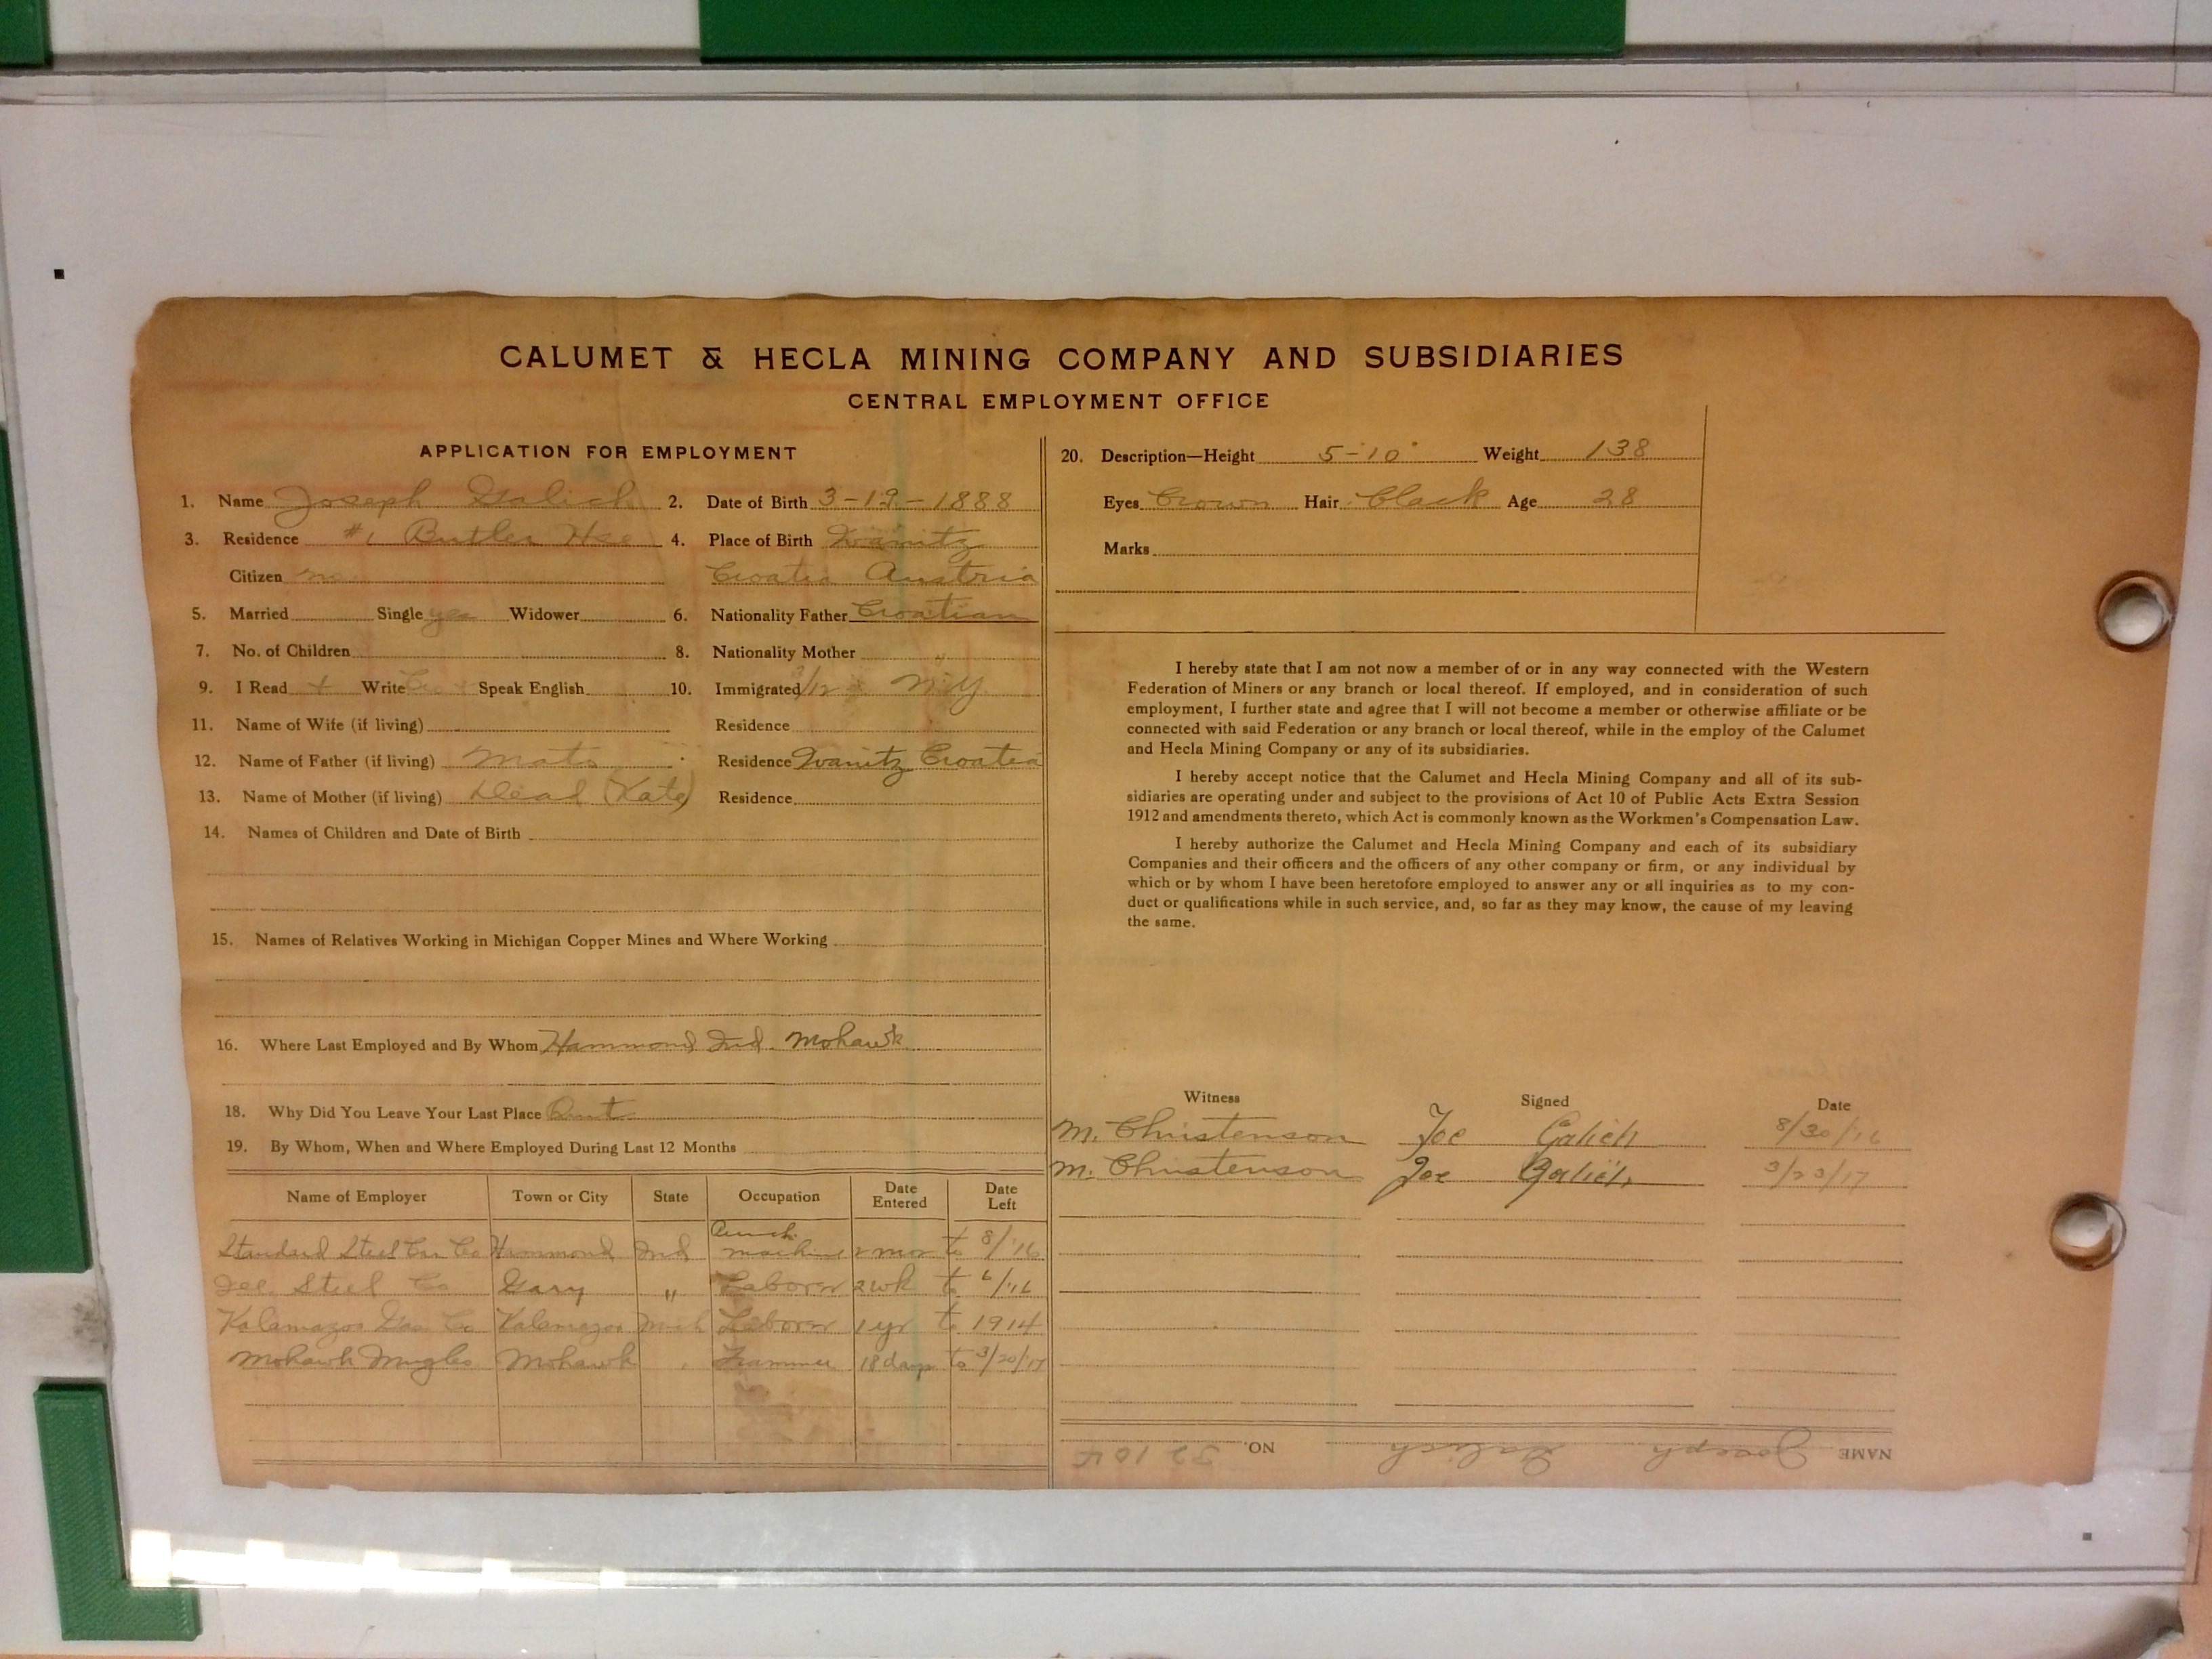 CALUMET & HECLA MINING COMPANY AND SUBSIDIARIES
CENTRAL EMPLOYMENT OFFICE
APPLICATION FOR EMPLOYMENT
1. Name Joseph Galich 2. Date of Birth 3-12-1888
3. Residence #1 Butler Hse 4. Place of Birth Ivanitz
Citizen no Croatia Austria
5. Married Single yes Widower 6. Nationality Father Croatian
7. No. of Children 8. Nationality Mother "
9. I Read + Write Speak English 10. Immigrated 3/12 NY
11. Name of Wife (if living) Residence
12. Name of Father (if living) Mato Residence Ivanitz Croatia
13. Name of Mother (if living) Dead (Kate) Residence
14. Names of Children and Date of Birth
15. Names of Relatives Working in Michigan Copper Mines and Where Working
16. Where Last Employed and By Whom Hammond Ind. Mohawk
18. Why Did You Leave Your Last Place Quit
19. By Whom, When and Where Employed During Last 12 Months
Name of Employer Town or City State Occupation Date Entered Date Left
Standard Steel Car Co Hammond Ind machine 2 mos to 8/'16
Steel Co Gary " Laborer 2 wk to 6/'16
Kalamazoo Gas Co Kalamazoo Mich Laborer 1 yr to 1914
Mohawk Mng Co Mohawk Trammer 18 days to 3/20/17
20. Description—Height 5-10 Weight 138
Eyes Brown Hair Black Age 28
Marks
I hereby state that I am not now a member of or in any way connected with the Western
Federation of Miners or any branch or local thereof. If employed, and in consideration of such
employment, I further state and agree that I will not become a member or otherwise affiliate or be
connected with said Federation or any branch or local thereof, while in the employ of the Calumet
and Hecla Mining Company or any of its subsidiaries.
I hereby accept notice that the Calumet and Hecla Mining Company and all of its sub-
sidiaries are operating under and subject to the provisions of Act 10 of Public Acts Extra Session
1912 and amendments thereto, which Act is commonly known as the Workmen's Compensation Law.
I hereby authorize the Calumet and Hecla Mining Company and each of its subsidiary
Companies and their officers and the officers of any other company or firm, or any individual by
which or by whom I have been heretofore employed to answer any or all inquiries as to my con-
duct or qualifications while in such service, and, so far as they may know, the cause of my leaving
the same.
Witness Signed Date
M. Christenson Joe Galich 8/30/16
M. Christenson Joe Galich 3/23/17
NAME Joseph Galich NO.